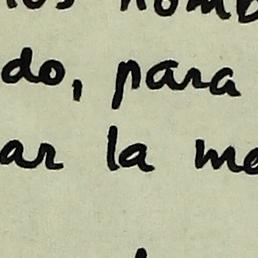 los homb
do, para
ar la me